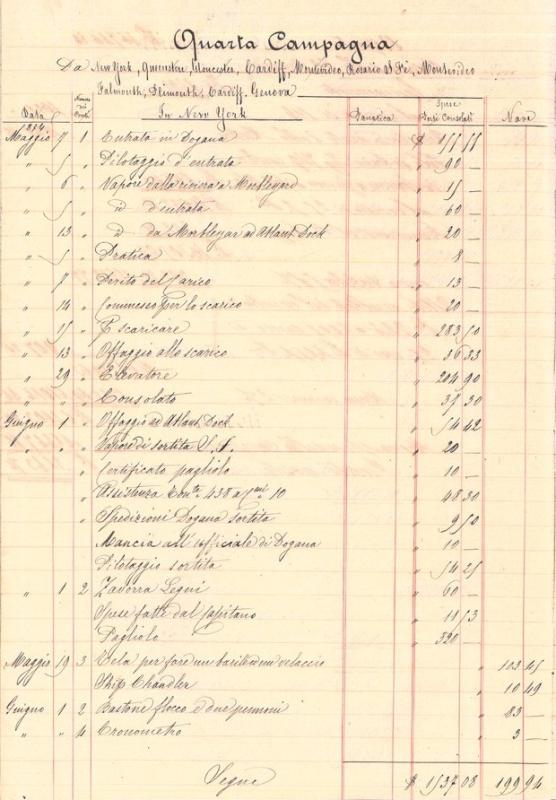 Quarta Campagna
Da New York, Queenstown, Gloucester, Cardiff, Montevideo, Rosario S Fè, Montevideo
Falmouth, Plimouth, Cardiff, Genova
Data Numero dei Conti In New York Panatica Spese Porti Consolati Nave
Maggio 7 1 Entrata in Dogana $ 155 55
" 5 " Pilotaggio d'entrata " 90 —
6 " Vapore dalla riviera a " 15 —
" 5 " id d'entrata " 60 —
" 13 " id da ad Atlant Dock " 20 —
" 5 " Pratica " 8 —
" 7 " Perito del Carico " 13 —
" 14 " Commesso per lo scarico " 20 —
" 15 " P scaricare " 283 50
" 13 " Offaggio allo scarico " 36 33
" 29 " Elevatore " 204 90
" " " Consolato " 37 30
Giugno 1 " Offaggio ad Atlant Dock " 54 42
" " " Vapore di sortita " 20 —
" Certificato pagliolo " 10 —
" Assistenza Tonte 438 a 10 " 48 30
" Spedizioni Dogana sortita " 9 50
Mancia all'ufficiale di Dogana " 10 —
Pilotaggio sortita " 54 25
" 1 2 Zavorra Legni " 60 —
Spese fatte dal Capitano " 18 53
Pagliolo " 320 —
Maggio 19 3 Tela per fare un velaccio " 103 45
Ship Chandler " 10 49
Giugno 1 2 Bastone flocco e due pennoni " 83 —
" " 4 Cronometro " 3 —
Segue $ 1537 08 199 94